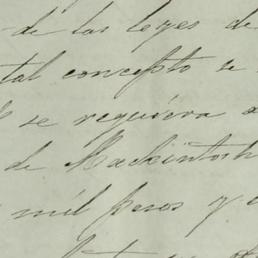 de las leyes de
tal concepto se
se requiera a
de Mackintosh
mil pesos y